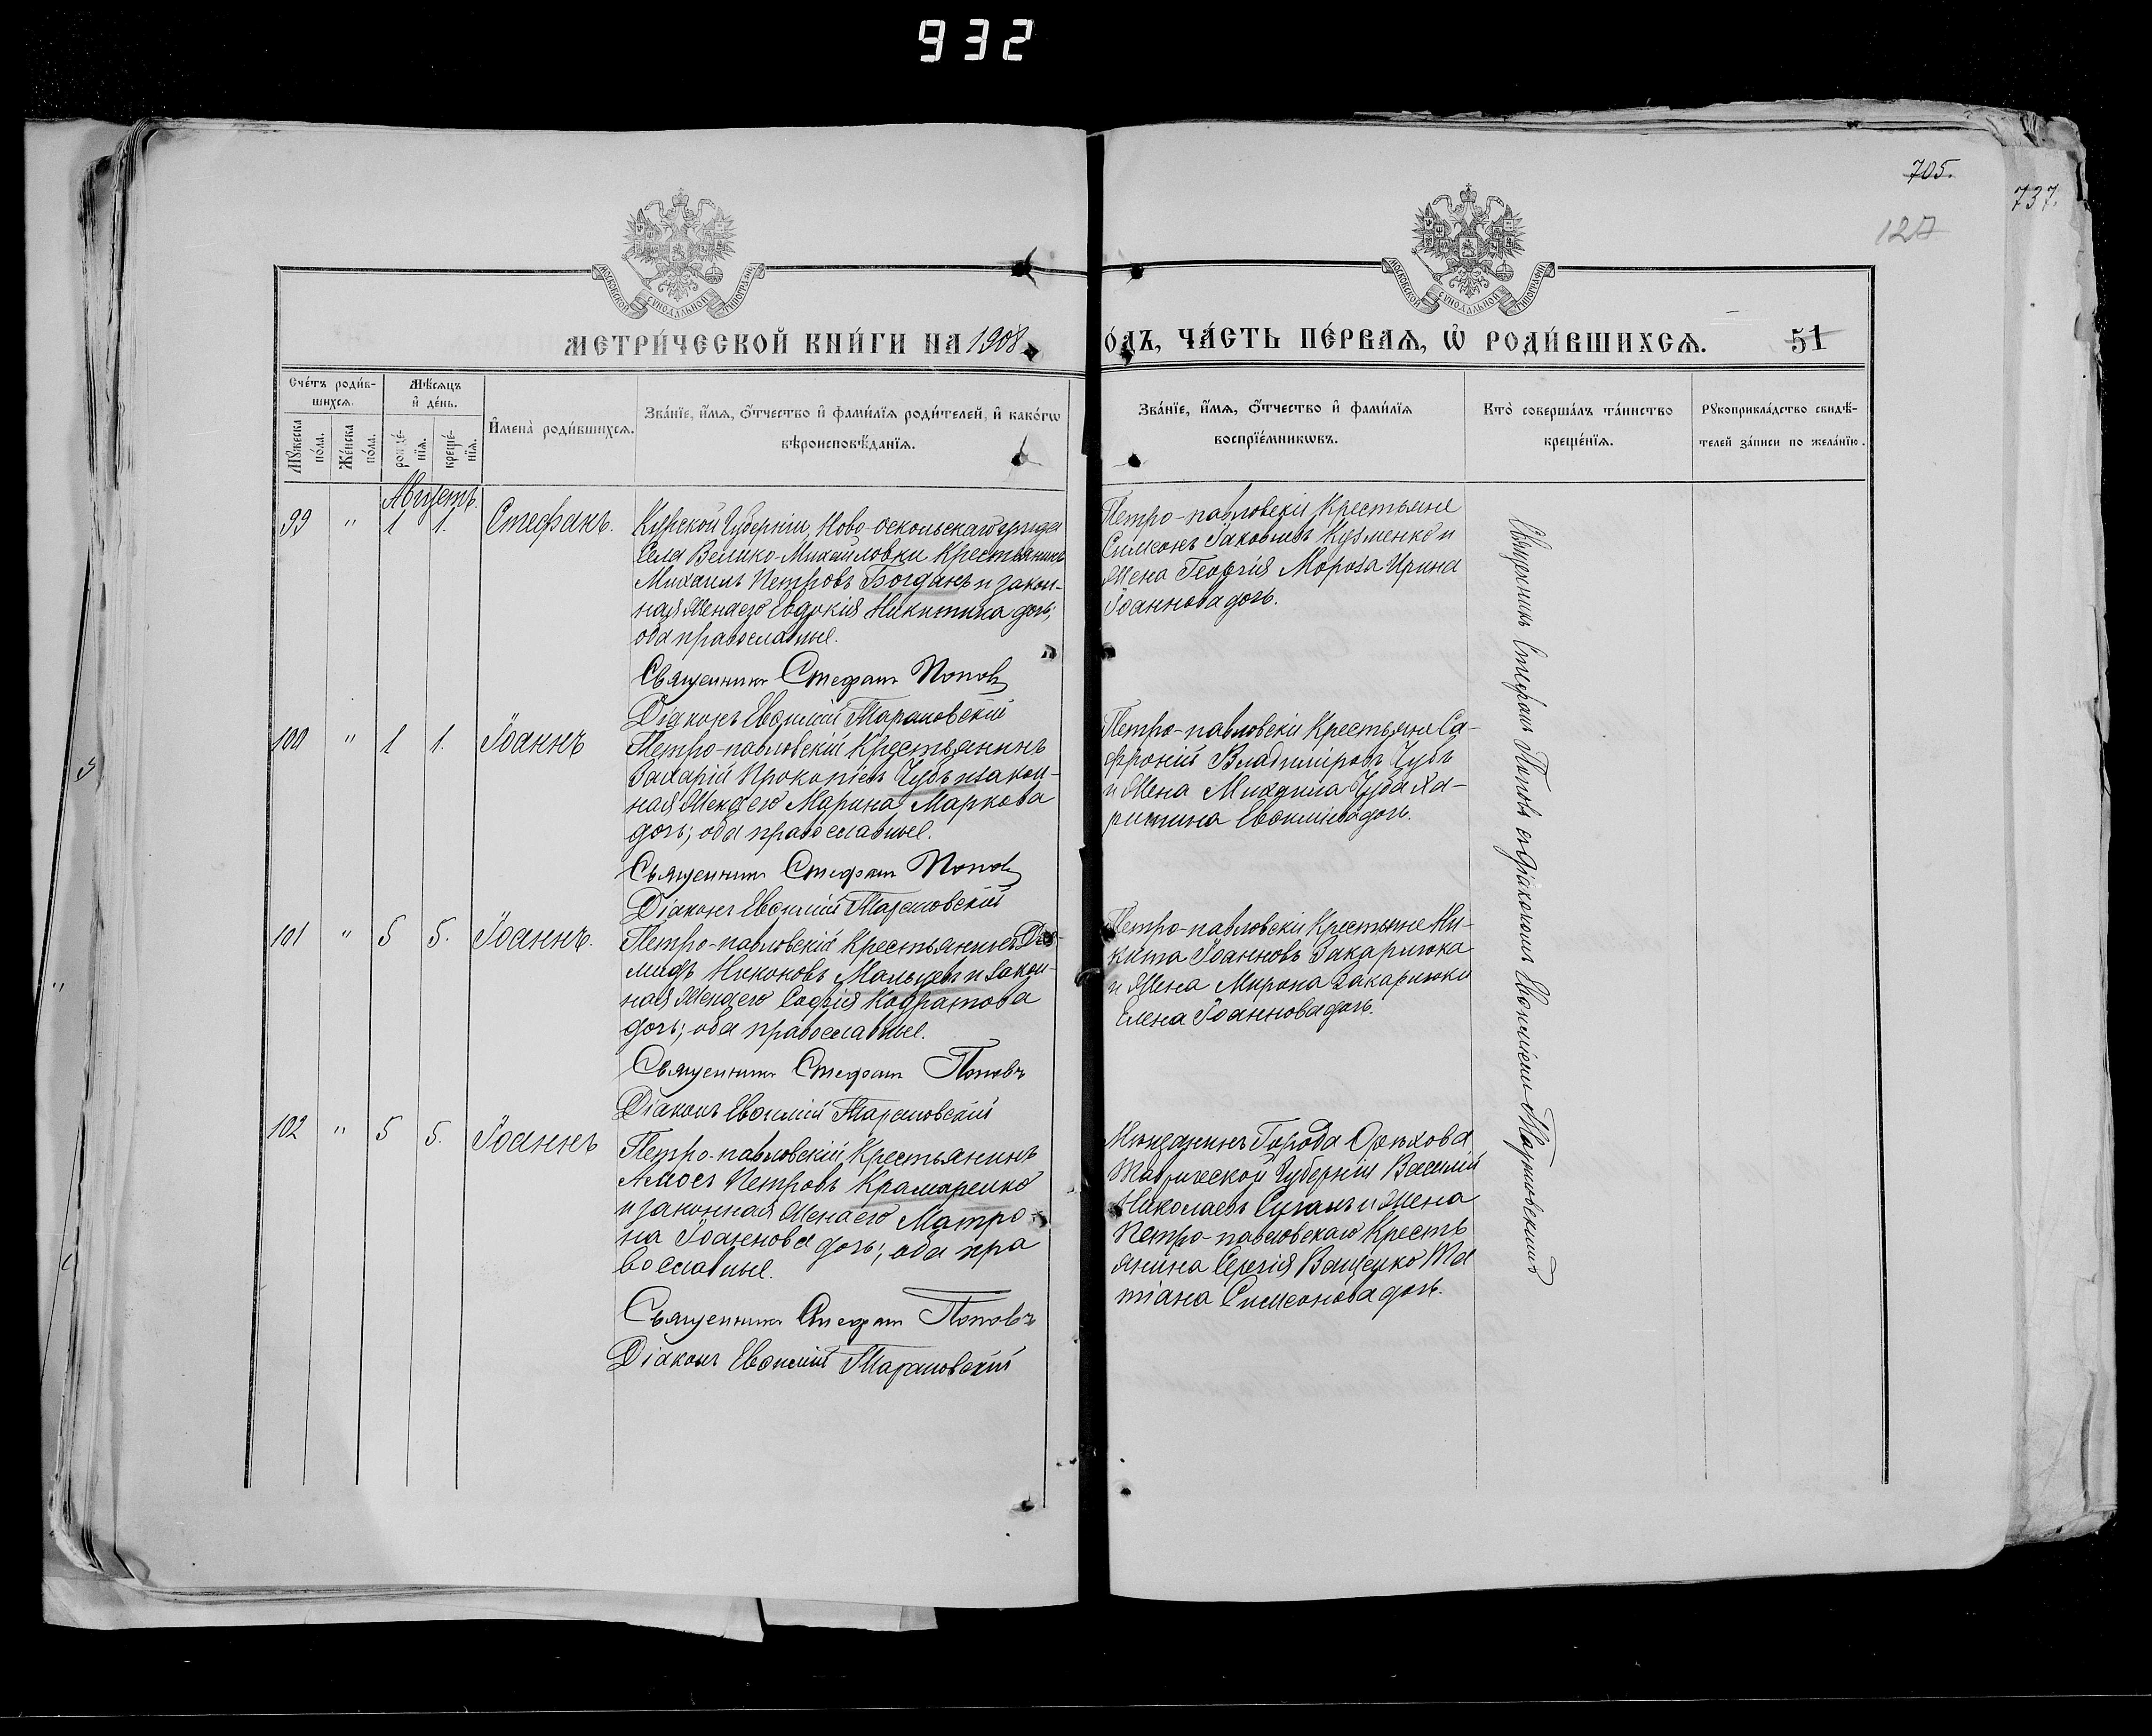 932
705.
737.
127
МОСКОВСКОЙ СѴНОДАЛЬНОЙ ТИПОГРАФІИ
МОСКОВСКОЙ СѴНОДАЛЬНОЙ ТИПОГРАФІИ
МЕТРИ́ЧЕСКОЙ КНИ́ГИ НА 1908
ОДЪ, ЧА́СТЬ ПЕ́РВАѦ, Ѡ҆ РОДИ́ВШИХСѦ. 51
Сче́тъ роди́в-
шихсѧ.
Мꙋжеска по́ла.
Же́нска по́ла.
Мѣ́сѧцъ
и҆ де́нь.
рожде́-
нїѧ.
креще́-
нїѧ.
И҆мена̀ роди́вшихсѧ.
Зва́нїе, и҆́мѧ, ѻ҆́тчество и҆ фами́лїѧ роди́телей, и҆ како́гѡ
вѣроисповѣ́данїѧ.
Зва́нїе, и҆́мѧ, ѻ҆́тчество и҆ фами́лїѧ
воспрїе́мникѡвъ.
Кто̀ соверша́лъ та́инство
креще́нїѧ.
Рꙋкоприкла́дство свидѣ́-
телей за́писи по жела́нїю.
Августъ.
99 " 1 1. Стефанъ.
Курской Губерніи, Ново-оскольскаго уѣзда
Села Велико-Михайловки Крестьянинъ
Михаилъ Петровъ Богданъ и закон-
ная жена его Евдокія Никитина дочь;
оба православные.
Священникъ Стефанъ Поповъ
Діаконъ Евфимій Тарановскій
Петро-павловскіи Крестьяне
Симеонъ Іаковлевъ Кузменко и
жена Георгія Мороза Ирина
Іоаннова дочь.
100 " 1 1. Іоаннъ
Петро-павловскій Крестьянинъ
Захарій Прокопіевъ Чубъ и закон-
ная жена его Марина Маркова
дочь; оба православные.
Священникъ Стефанъ Поповъ
Діаконъ Евфимій Тарановскій
Петро-павловскіи Крестьяне Са-
фроній Владиміровъ Чубъ
и жена Михаила Чуба Ха-
ритина Евфиміева дочь.
101 " 5 5. Іоаннъ.
Петро-павловскій Крестьянинъ Діо-
мидъ Никоновъ Мальцевъ и закон-
ная жена его Софія Кодратова
дочь; оба православные.
Священникъ Стефанъ Поповъ
Діаконъ Евфимій Тарановскій
Петро-павловскіи Крестьяне Ни-
кита Іоанновъ Закарлюка
и жена Мирона Закарлюки
Елена Іоаннова дочь.
102 " 5 5. Іоаннъ
Петро-павловскій Крестьянинъ
Амосъ Петровъ Крамаренко
и законная жена его Матро-
на Іоаннова дочь; оба пра
вославные.
Священникъ Стефанъ Поповъ
Діаконъ Евфимій Тарановскій
Мѣщанинъ Города Орѣхова
Таврической Губерніи Василій
Николаевъ и жена
Петро-павловскаго Кресть
янина Сергія Ващенко Та
тіана Симеонова дочь.
Священникъ Стефанъ Поповъ съ діакономъ Евфиміемъ Тарановскимъ